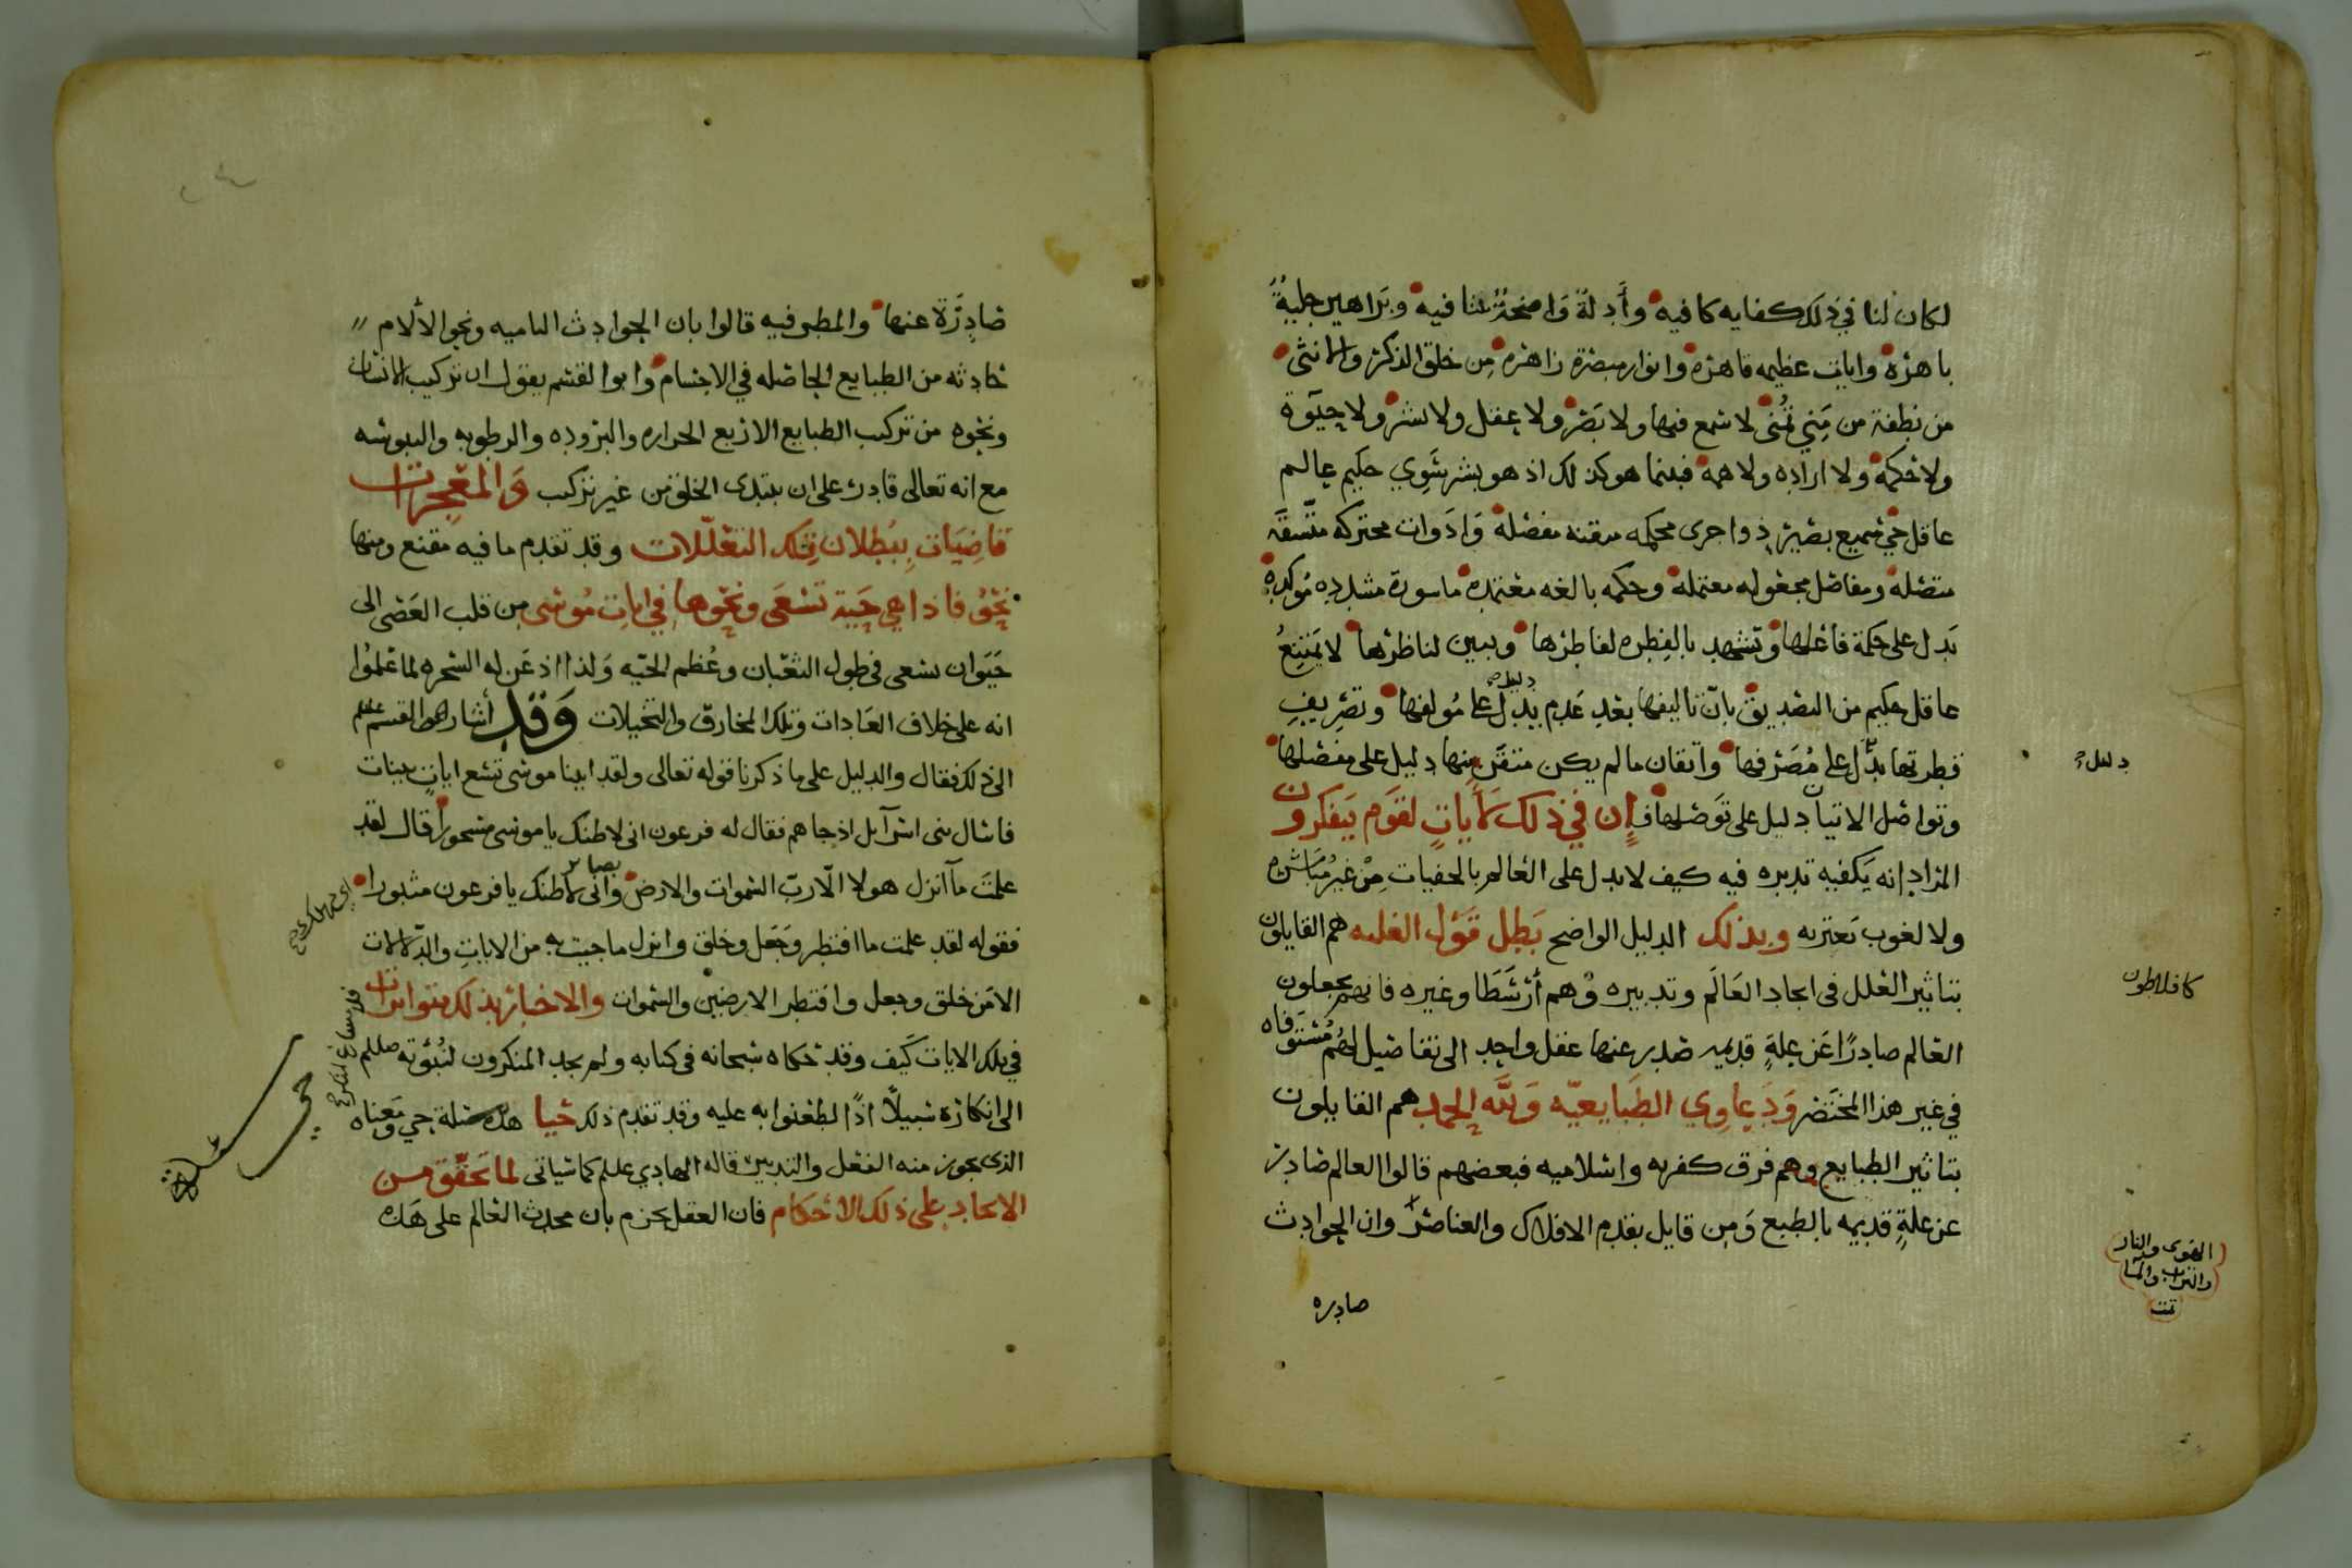 لكان لنا في ذلك كفايه كافيه وأدلة واضحة شافيه وبراهين جلية
باهره وايات عظيمه قاهره وانوار مبصرة زاهره من خلق الذكر والانثى
من نطفة من مني تمنى لا سمع فيها ولا بصر ولا عقل ولا بشر ولا حيوة
ولا حكمه ولا اراده ولا همه فبينما هو كذلك اذ هو بشر سوي حكيم عالم
عاقل حي سميع بصير ذو اجزى محكمه متقنه مفصله وادوات محتركه متسقه
متصله ومفاصل مجعوله معتمله وحكمه بالغه معتمده ماسورة مشدده موكده
يدل على حكمة فاعلها وتشهد بالفطره لفاطرها ويبين لناظرها لا يمتنع
عاقل حكيم من التصديق بان تاليفها بعد عدم يدل على مولفها وتصريف
فطرتها يدل على مصرفها واتقان ما لم يكن متقن منها دليل على مفصلها
دليل
وتواصل الاتيا دليل على توصلها ف إن في ذلك لأيات لقوم يتفكرون
المراد انه يكفيه تدبره فيه كيف لا يدل على العالم بالخفيات من غير مباشره
ولا لغوب تعتريه وبذلك الدليل الواضح بطل قول العليه هم القايلون
بتاثير العلل في ايجاد العالم وتدبيره وهم أرسطا وغيره فانهم يجعلون
كافلاطون
العالم صادرا عن علة قديمه صدر عنها عقل واحد الى تفاصيل لهم مستوفاه
في غير هذا المختصر ودعاوي الطبايعيه ولله الحمد هم القايلون
بتاثير الطبايع وهم فرق كفريه واسلاميه فبعضهم قالوا العالم صادر
عن علة قديمه بالطبع ومن قايل بقدم الافلاك والعناصر وان الحوادث
الهوى والنار
والتراب والما
تمت
صادره
صادرة عنها والمطرفيه قالوا بان الحوادث الناميه ونحو الألام
حادثه من الطبايع الحاصله في الاجسام وابو القسم يقول ان تركيب الانسان
ونحوه من تركيب الطبايع الاربع الحراره والبروده والرطوبه واليبوسه
مع انه تعالى قادر على ان يبتدى الخلق من غير تركيب والمعجزات
قاضيات ببطلان تلك التعللات وقد تقدم ما فيه مقنع ومنها
نحو فاذا هي حية تسعى ونحوها في ايات موسى من قلب العصى الى
حيوان يسعى في طول الثعبان وعظم الحيه ولذا اذعن له السحره لما علموا
انه على خلاف العادات وتلك المخارق والتخيلات وقد أشار القسم عليلم
الى ذلك فقال والدليل على ما ذكرنا قوله تعالى ولقد اتينا موسى تسع ايات بينات
فاسال بنى اسرآيل اذ جاهم فقال له فرعون انى لاظنك يا موسى مسحورا قال لقد
علمت مآ انزل هولا الا رب السموات والارض بصاير وانى لاظنك يا فرعون مثبورا
فقوله لقد علمت ما افتطر وجعل وخلق وانزل ما جيت به من الايات والدلالات
الا من خلق وجعل وافتطر الارضين والسموات والاخبار بذلك متواترات
في تلك الايات كيف وقد حكاه سبحانه في كتابه ولم يجد المنكرون لنبوته صللم
الى انكاره سبيلا اذا لطعنوا به عليه وقد تقدم ذلك حيا هذه مسئلة حي ومعناه
الذى يجوز منه الفعل والتدبير قاله الهادي عليلم كما سياتى لما تحقق من
الايجاد على ذلك الاحكام فان العقل يجزم بان محدث العالم على هذه
حي